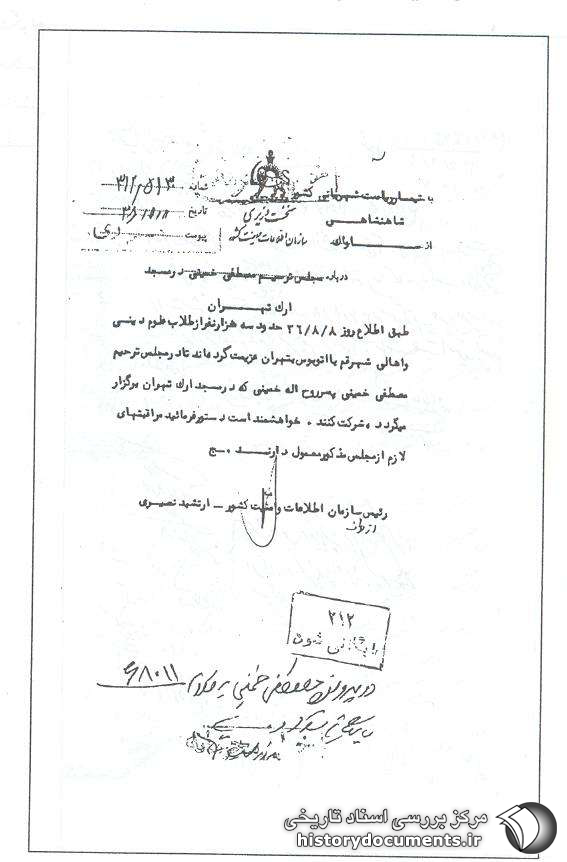 به تیمسار ریاست شهربانی کشور
شاهنشاهی
از ساواک
نخست وزیری
سازمان اطلاعات و امنیت کشور
شماره
تاریخ
پیوست
درباره مجلس ترحیم مصطفی خمینی در مسجد
ارک تهران
طبق اطلاع روز ۳۶/۸/۸ حدود سه هزار نفر از طلاب علوم دینی
و اهالی شهر قم با اتوبوس بتهران عزیمت کرده‌اند تا در مجلس ترحیم
مصطفی خمینی پسر روح اله خمینی که در مسجد ارک تهران برگزار
میگردد، شرکت کنند. خواهشمند است دستور فرمائید مراقبتهای
لازم از مجلس مذکور معمول دارند. ج
رئیس سازمان اطلاعات و امنیت کشور - ارتشبد نصیری
از طرف
۲۱۲
بایگانی شود
مرکز بررسی اسناد تاریخی
historydocuments.ir